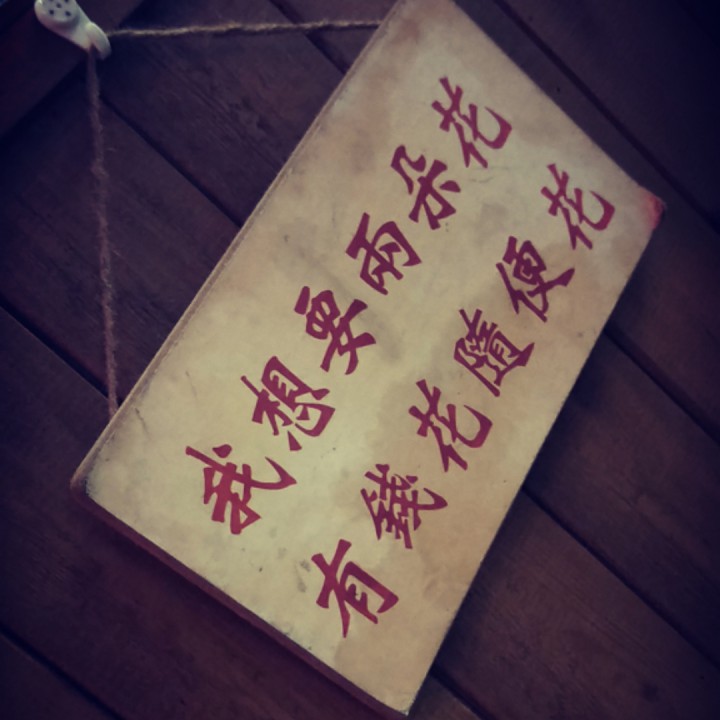 我想要兩朵花
有錢花隨便花